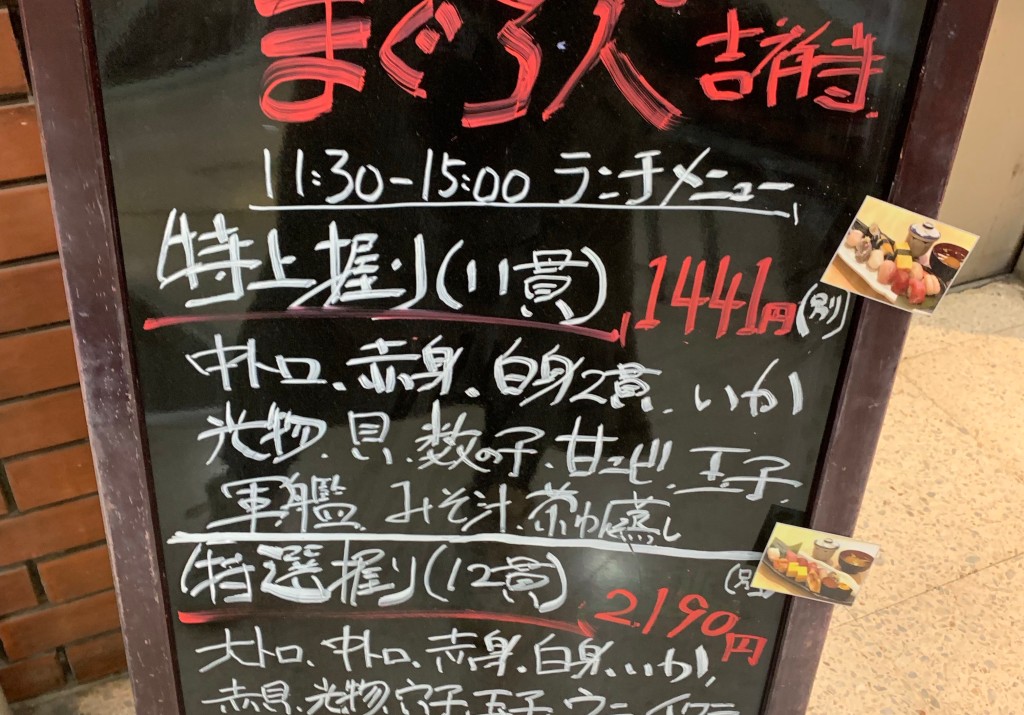 まぐろ人 吉祥寺
11:30-15:00 ランチメニュー
特上握り(11貫) 1441円(別)
中トロ、赤身、白身2貫、いか
光物、貝、数の子、甘エビ、玉子
軍艦、みそ汁、茶わん蒸し
特選握り(12貫) 2,190円(別)
大トロ、中トロ、赤身、白身、いか、
赤貝、光物、穴子、玉子、ウニ、イクラ